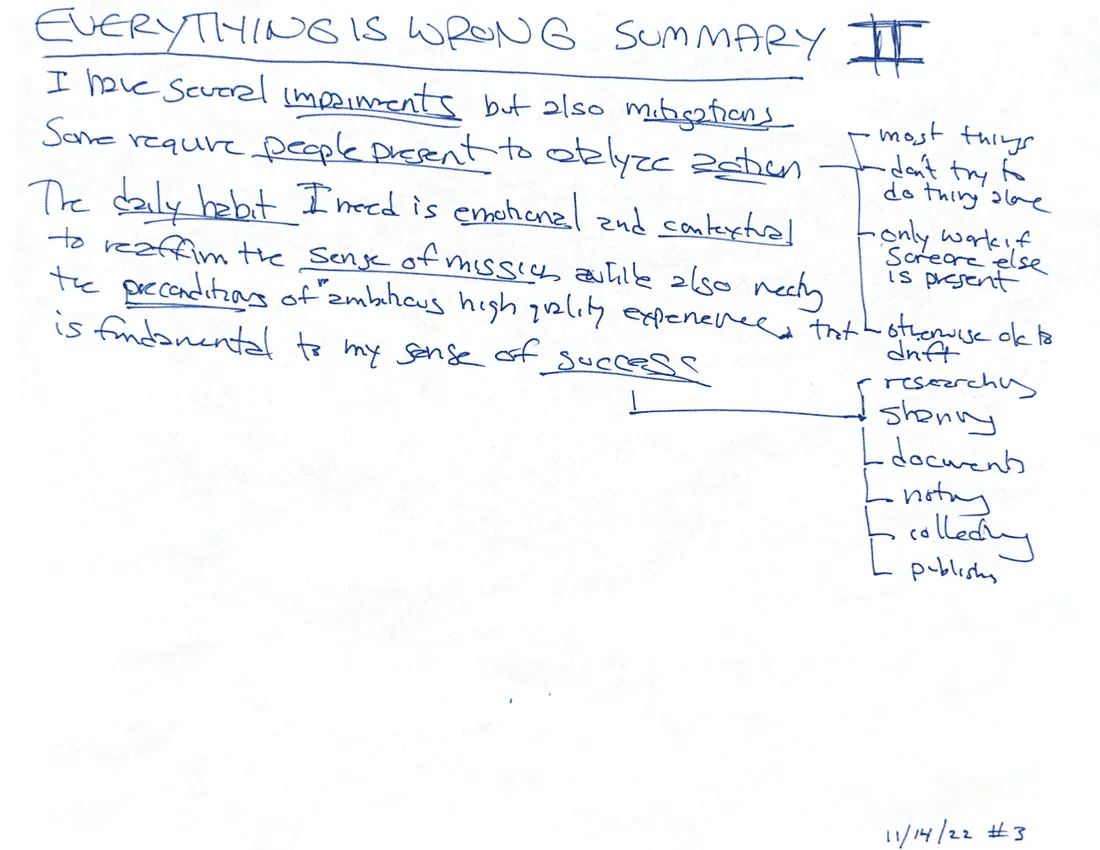 EVERYTHING IS WRONG SUMMARY II
I have several impairments but also mitigations
Some require people present to catalyze action
The daily habit I need is emotional and contextual
to reaffirm the sense of mission while also
the preconditions of "ambitious high quality experiences" that
is fundamental to my sense of success
most things
don't try to
do thing alone
only work if
someone else
is present
otherwise ok to
drift
researching
sharing
documents
noting
collecting
publishing
11/14/22 #3